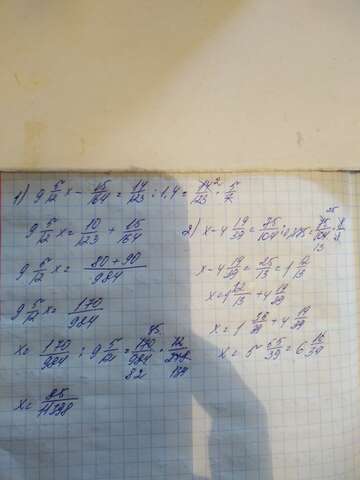 1) 9 5/12 x - 15/164 = 14/123 : 1,4 = 14²/123 · 5/7
9 5/12 x = 10/123 + 15/164
9 5/12 x = 80+90/984
9 5/12 x = 170/984
x = 170/984 : 9 5/12 =
x = 85/11398
2) x - 4 19/39 = 75/104 :
x - 4 19/39 = 25/13 = 1 12/13
x = 1 12/13 + 4 19/39
x = 1 36/39 + 4 19/39
x = 5 55/39 = 6 16/39